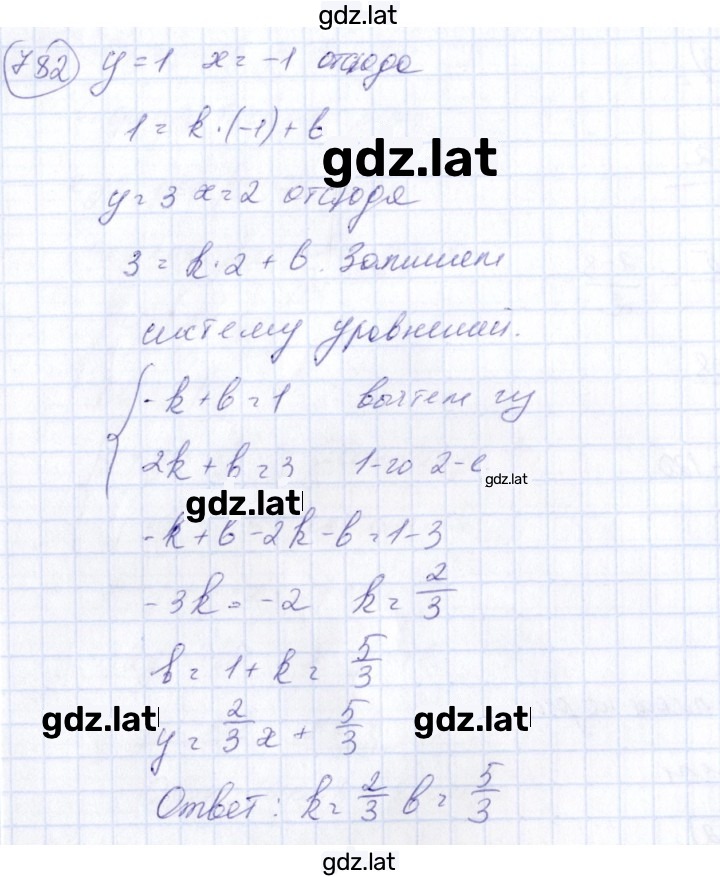 gdz.lat
782 y = 1 x = -1 отсюда
1 = k·(-1) + b
gdz.lat
y = 3 x = 2 отсюда
3 = k·2 + b. Запишем
систему уравнений.
-k + b = 1 вычтем из
2k + b = 3 1-го 2-е
gdz.lat
gdz.lat
-k + b - 2k - b = 1 - 3
-3k = -2 k = 2/3
b = 1 + k = 5/3
gdz.lat
y = 2/3 x + 5/3
gdz.lat
Ответ: k = 2/3 b = 5/3
gdz.lat